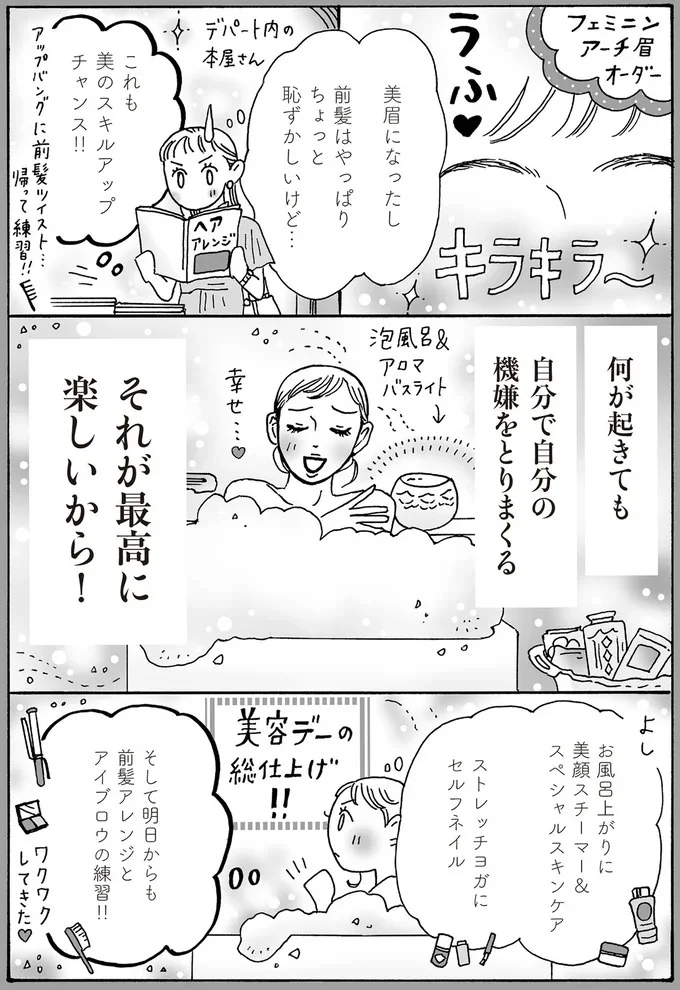 フェミニン
アーチ眉
オーダー
うふ♥
キラキラ〜
美眉になったし
前髪はやっぱり
ちょっと
恥ずかしいけど…
デパート内の
本屋さん
これも
美のスキルアップ
チャンス!!
ヘア
アレンジ
アップバングに前髪ツイスト…
帰って練習!!
何が起きても
自分で自分の
機嫌をとりまくる
泡風呂&
アロマ
バスライト
幸せ…♥
それが最高に
楽しいから!
よし
お風呂上がりに
美顔スチーマー&
スペシャルスキンケア
ストレッチヨガに
セルフネイル
美容デーの
総仕上げ
!!
そして明日からも
前髪アレンジと
アイブロウの練習!!
ワクワク
してきた♥